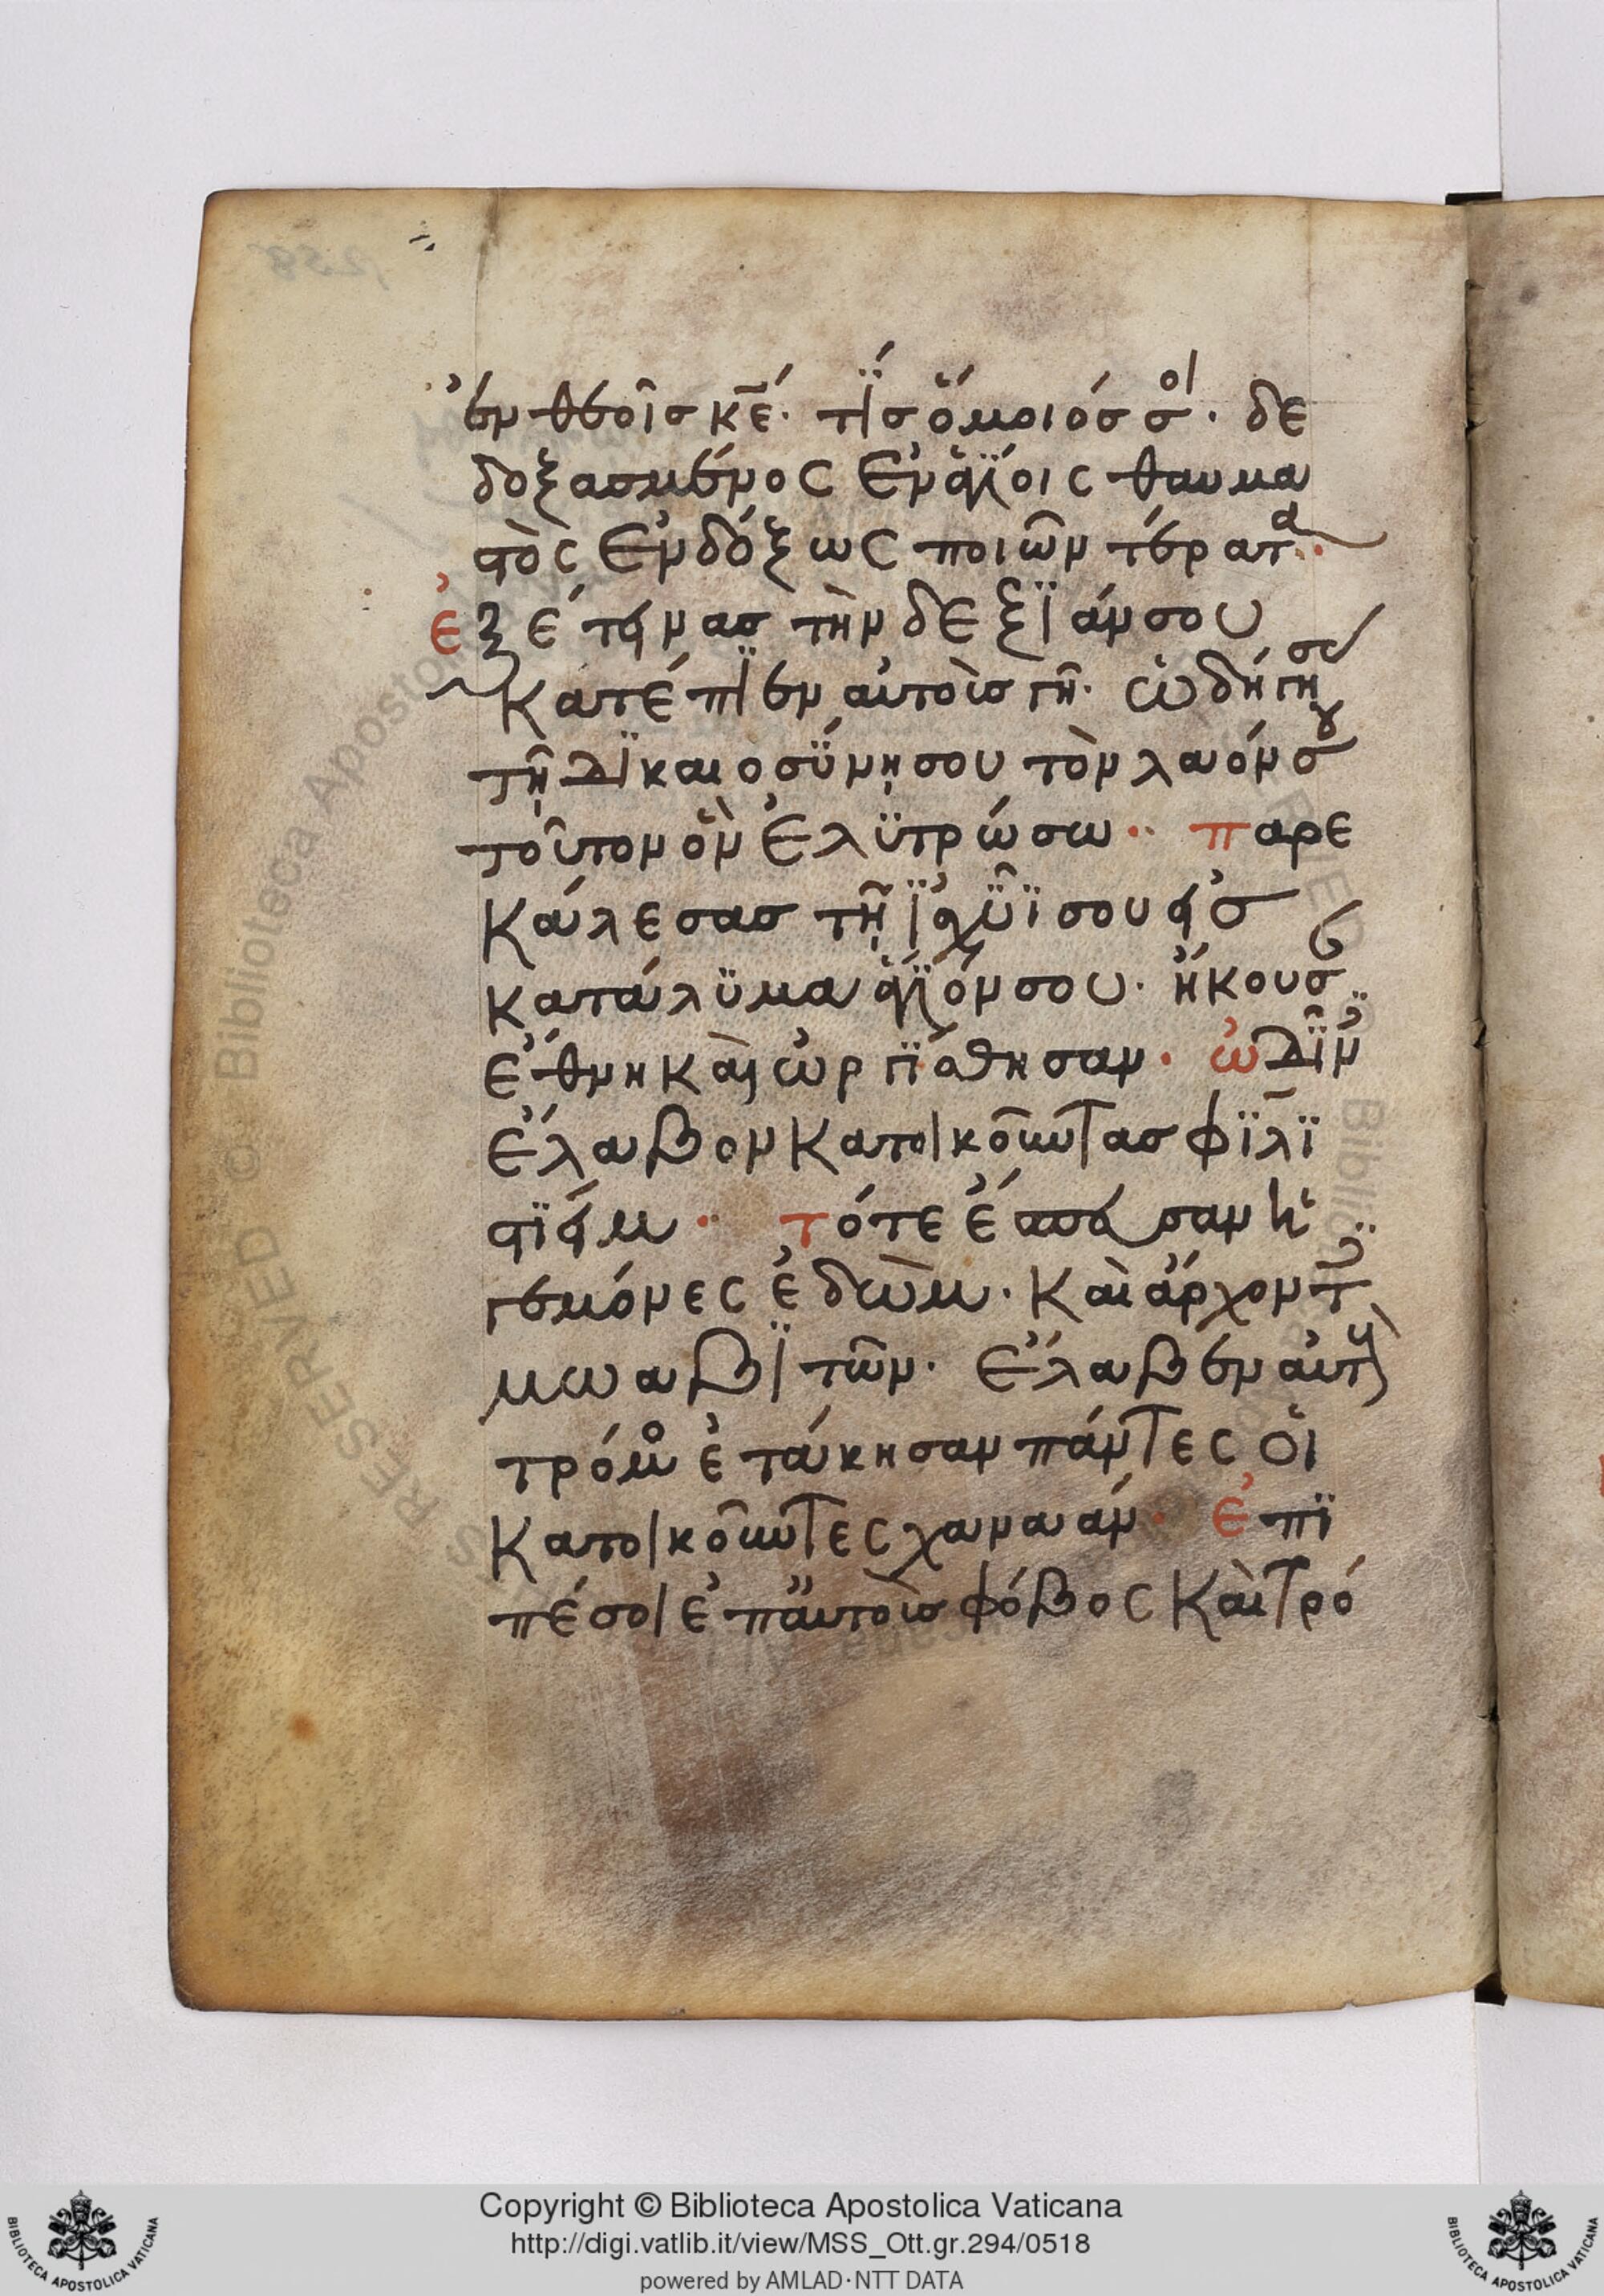 ἐν θεοῖσ κ̅ε̅· τΐσ ὅμοιόσ σοι· δε
δοξασμένος ἐν ἁγΐοις θαυμα
στὸς ἐνδόξως ποιῶν τέρατα··
ἐξέτεινασ τὴν δεξϊάν σου
κατέπϊεν αὐτοὺσ γῆ· ὡδήγησασ
τῇ δϊκαιοσΰνῃ σου τὸν λαόν σου
τοῦτον ὃν ἐλϋτρώσω·· παρε
κάλεσασ τῇ ϊσχΰϊ σου εἰσ
κατάλϋμα ἅγϊόν σου· ἤκουσεν
ἔθνη καὶ ὠργΐσθησαν· ὠδῖνεσ
ἔλαβον κατοικοῦντασ φϋλϊ
στϊείμ·· τότε ἔσπευσαν ἡ
γεμόνες ἐδώμ· καὶ ἄρχοντεσ
μωαβϊτῶν· ἔλαβεν αὐτοὺσ
τρόμοσ ἐτάκησαν πάντες οἱ
κατοικοῦντες χαναάν· ἐπϊ
πέσοι ἐπ αὐτοὺσ φόβος καὶ τρό
Copyright © Biblioteca Apostolica Vaticana
http://digi.vatlib.it/view/MSS_Ott.gr.294/0518
powered by AMLAD·NTT DATA